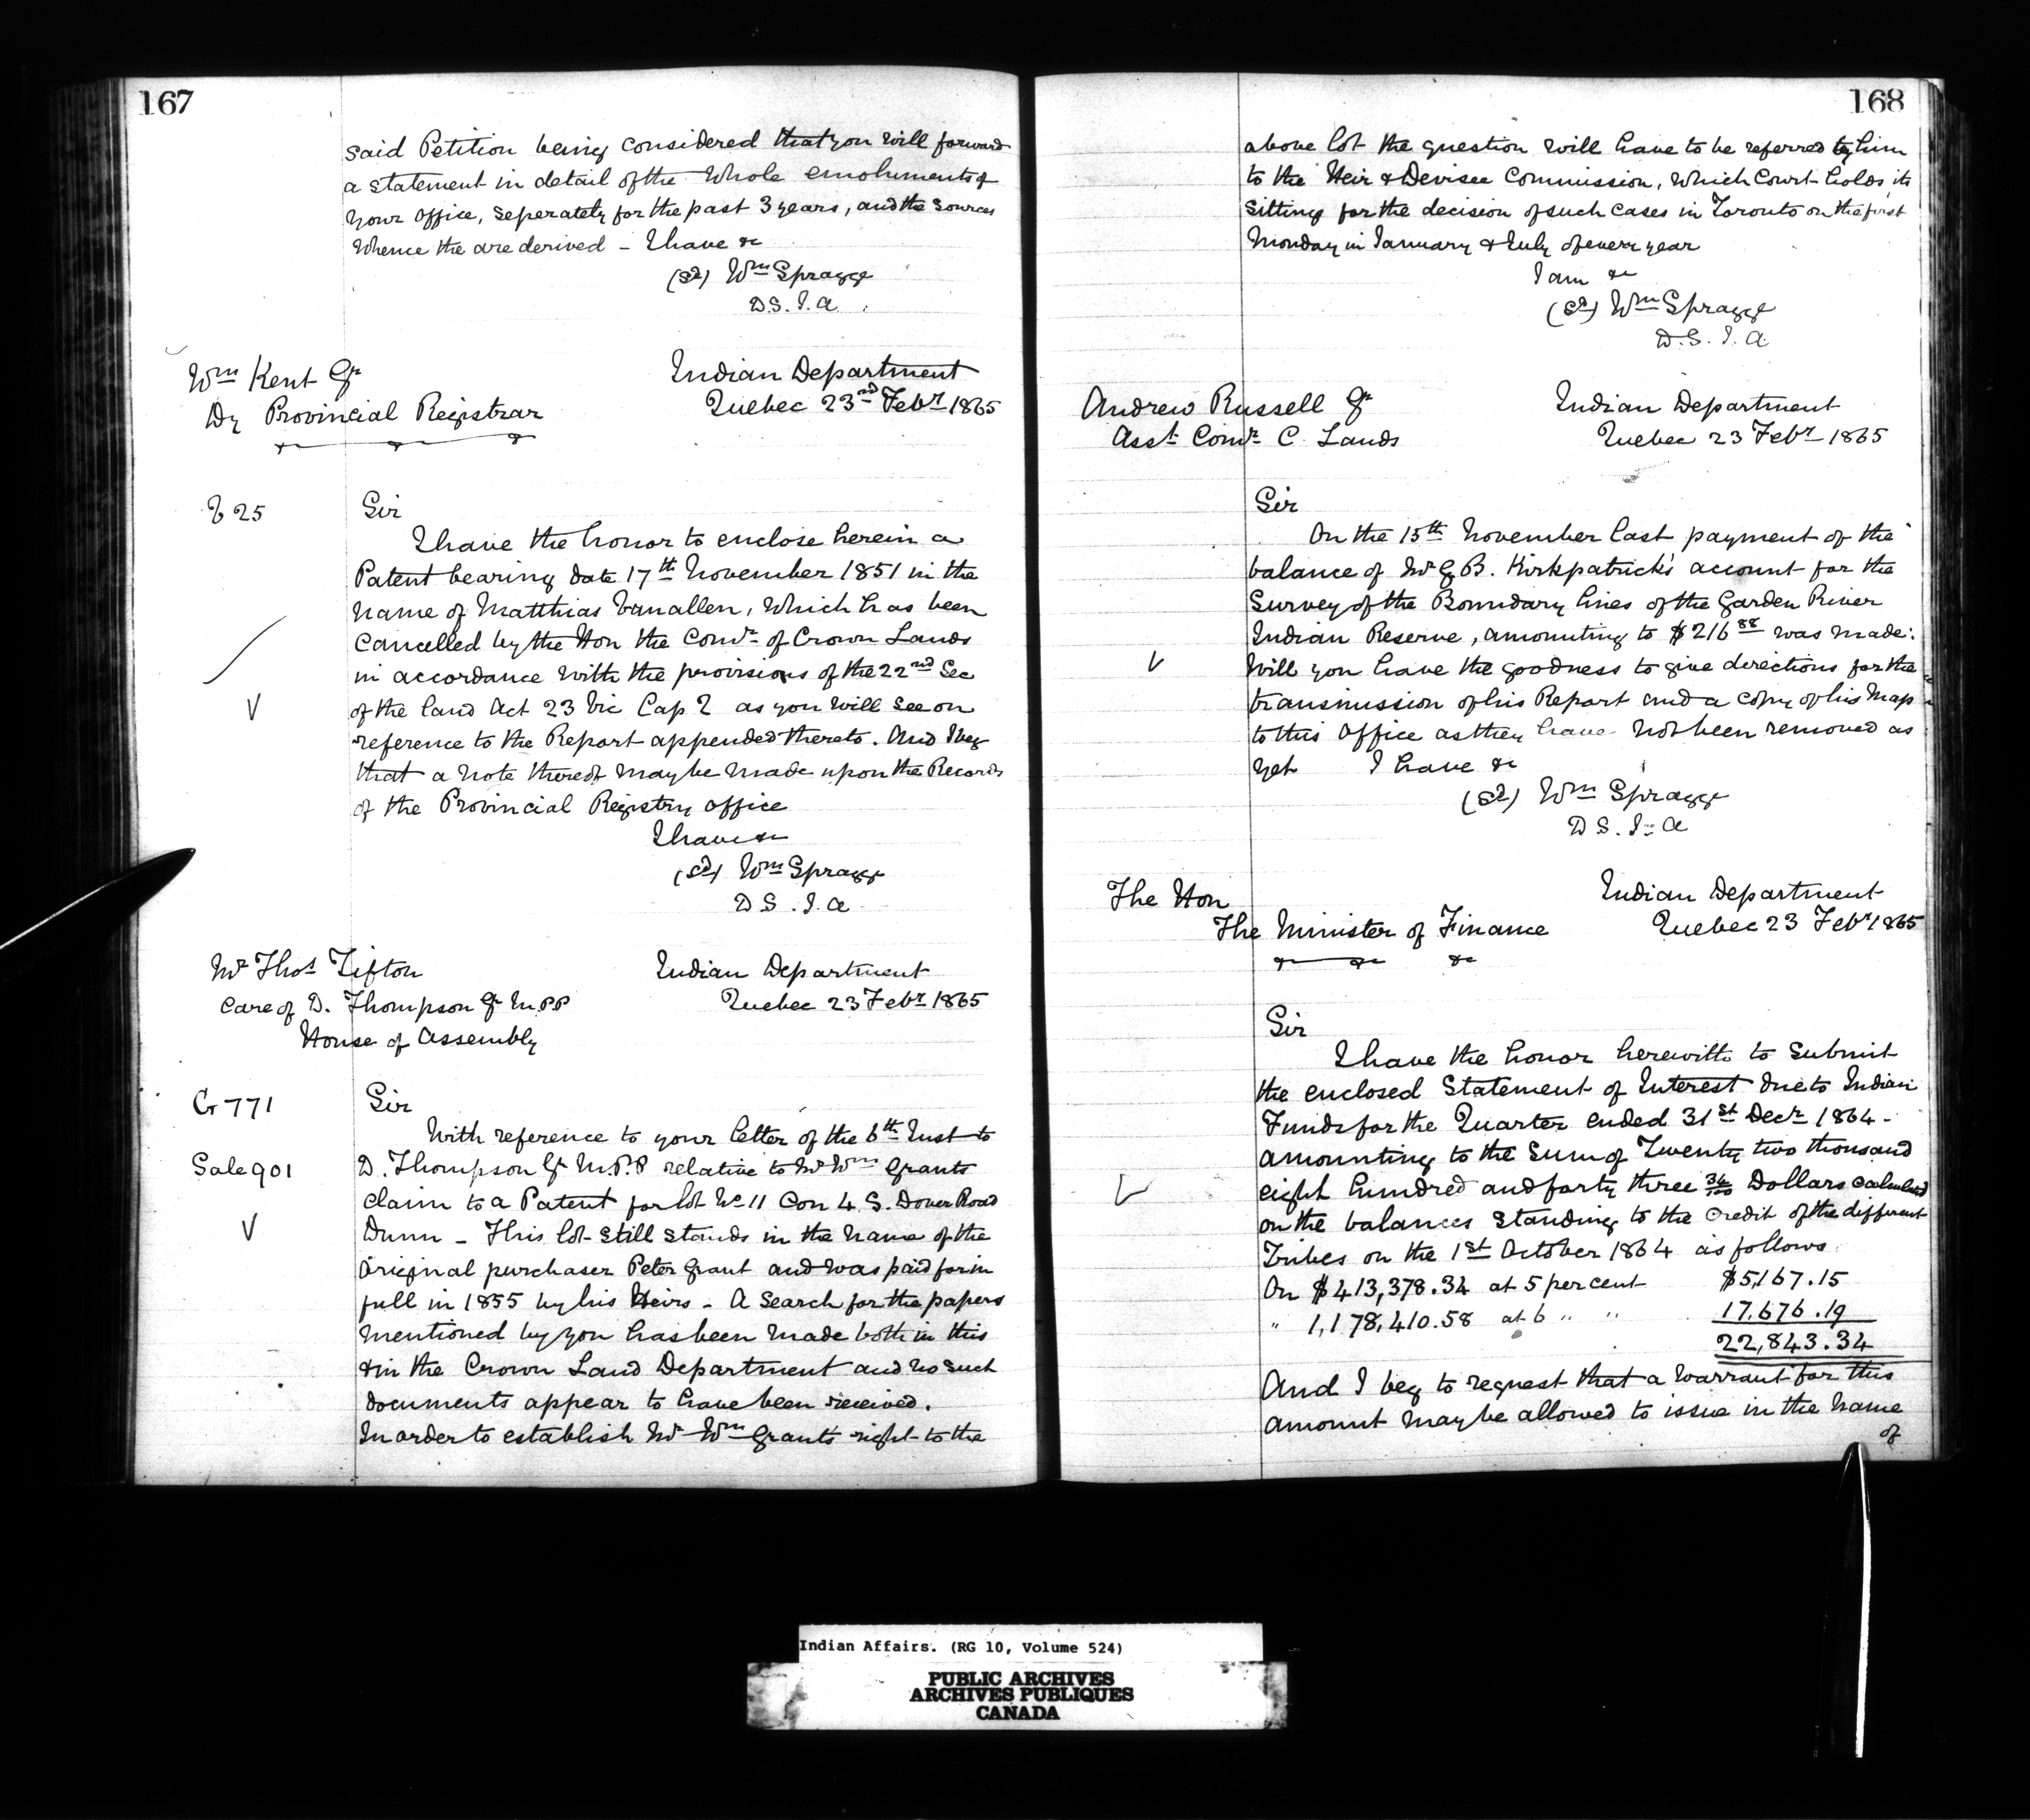 167
said Petition being considered that you will forward
a statement in detail of the Whole emoluments of
your office, seperately for the past 3 years, and the sources
Whence the are derived - I have &c
(Sd) Wm Spragge
D.S.I.A.
Wm Kent Esqr
Dy Provincial Registrar
Indian Department
Quebec 23nd Febr 1865
25
Sir
I have the honor to enclose herein a
Patent bearing date 17th November 1851 in the
name of Matthias Vanallen, Which has been
Cancelled by the Hon the Comr of Crown Lands
in accordance with the provisions of the 22nd Sec
of the Land Act 23 Vic Cap 2 as you will see on
reference to the Report appended thereto. And I beg
that a note thereof may be made upon the Records
of the Provincial Registry office
I have &c
(Sd) Wm Spragge
D.S.I.A
Mr Thos Tifton
Care of D. Thompson Esqr M.P.P
House of Assembly
Indian Department
Quebec 23 Febr 1865
G 771
Sir
With reference to your letter of the 6th Inst to
Sale 901
D. Thompson Esqr M.P.P relative to Mr Wm Grants
Claim to a Patent for lot No 11 Con 4 S. Dover Road
Dunn - This lot still stands in the name of the
original purchaser Peter Grant and was paid for in
full in 1855 by his Heirs - A search for the papers
mentioned by you has been made both in this
& in the Crown Land Department and no such
documents appear to have been received.
In order to establish Mr Wm Grants right to the
168
above lot the question will have to be referred by him
to the Heir & Devisee Commission, Which Court holds its
sitting for the decision of such cases in Toronto on the first
Monday in January & July of every year
I am &c
(Sd) Wm Spragge
D.S.I.A
Andrew Russell Esqr
Asst Comr C. Lands
Indian Department
Quebec 23 Febr 1865
Sir
On the 15th November last payment of the
balance of Mr G.B. Kirkpatrick's account for the
Survey of the Boundary lines of the Garden River
Indian Reserve, amounting to $216 88 was made.
Will you have the goodness to give directions for the
transmission of his Report and a copy of his Map
to this Office as they have not been removed as
yet I have &c
(Sd) Wm Spragge
D.S.I.A
The Hon
The Minister of Finance
&c &c
Indian Department
Quebec 23 Febr 1865
Sir
I have the honor herewith to submit
the enclosed Statement of Interest due to Indian
Funds for the Quarter ended 31st Decr 1864 -
amounting to the Sum of Twenty two thousand
eight hundred and forty three 34/100 Dollars calculated
on the balances standing to the Credit of the different
Tribes on the 1st October 1864 as follows
On $413,378.34 at 5 percent $5,167.15
" 1,178,410.58 at 6 " " 17,676.19
22,843.34
And I beg to request that a Warrant for this
amount may be allowed to issue in the name
of
Indian Affairs. (RG 10, Volume 524)
PUBLIC ARCHIVES
ARCHIVES PUBLIQUES
CANADA